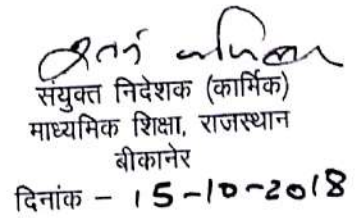 संयुक्त निदेशक (कार्मिक)
माध्यमिक शिक्षा, राजस्थान
बीकानेर
दिनांक – 15-10-2018